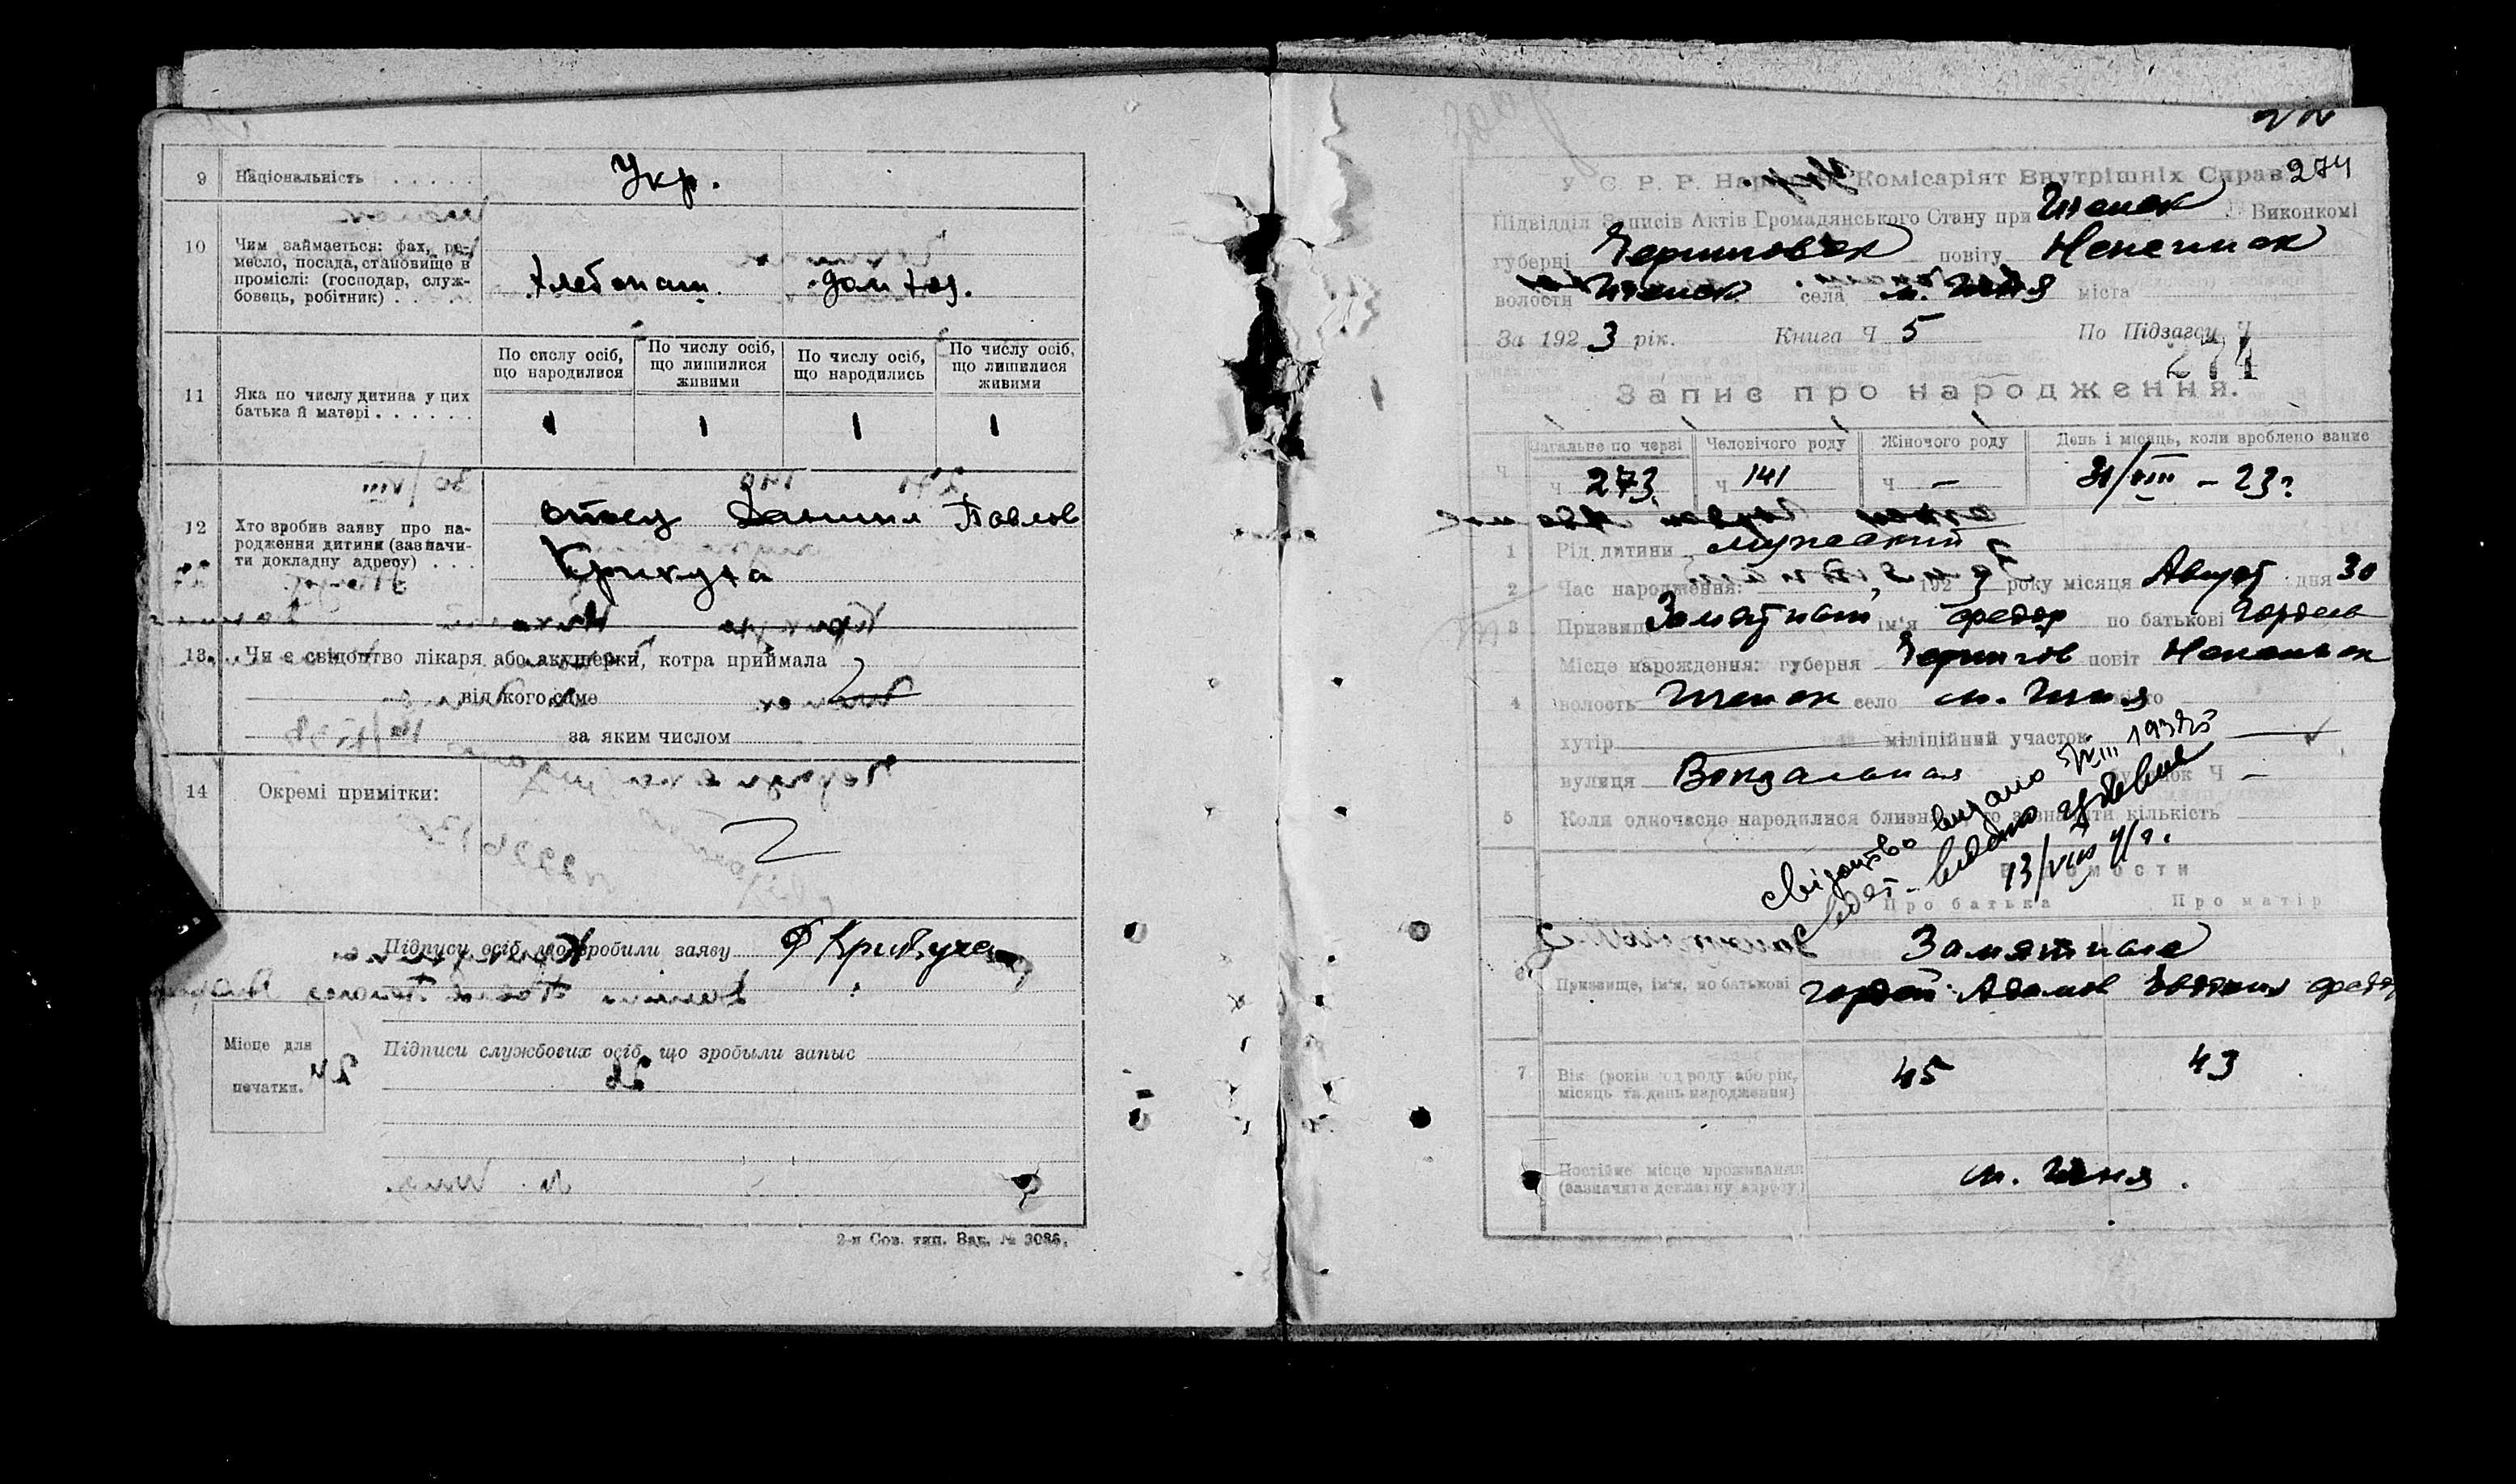 9 Національність . . . . . Укр.
10 Чим займається: фах, ре-
месло, посада, становище в
промислі: (господар, служ-
бовець, робітник) . . Хлебопаш. дом. хоз.
По числу осіб, що народилися
По числу осіб, що лишилися живими
По числу осіб, що народились
По числу осіб, що лишилися живими
11 Яка по числу дитина у цих
батька й матері . . . . . . 1 1 1 1
12 Хто зробив заяву про на-
родження дитини (зазначи-
ти докладну адресу) . . .
отец Даниил Павлов
Крикуха
13 Чи є свідоцтво лікаря або акушерки, котра приймала
від кого саме
за яким числом
14 Окремі примітки:
Підписи осіб, що зробили заяву
Місце для
печатки.
Підписи службових осіб, що зробыли запыс
2-я Сов. тип. Зак. № 3086.
274
У. С. Р. Р. Народний Комісаріят Внутрішніх Справ
Підвідділ Записів Актів Громадянського Стану при Ичнек Виконкомі
губерні Черниговск повіту Нежинск
волости Ичнек села м. Ичня міста
За 1923 рік. Книга Ч 5 По Підзагсу Ч
274
Запис про народження.
Загальне по черзі Человічого роду Жіночого роду День і місяць, коли зроблено запис
Ч 273 Ч 141 Ч — 31/VIII – 23 г
1 Рід дитини мужеский
2 Час народження: 1923 року місяця Август дня 30
3 Призвище Замятиш ім'я Федор по батькові Гордеев
Місце народження: губерня Чернигов повіт Неженск
4 волость Иченск село м. Ичня
хутір міліційний участок
вулиця Вокзальная будинок Ч —
5 Коли одночасно народилися близнята, то зазначити кількість
свідоцтво видано
13/VIII 41 г.
Відомости
Про батька Про матір
6 Призвище, ім'я, по батькові
Гордей Адамов Евдокия Федор
7 Вік (років од роду або рік,
місяць та день народження) 45 43
Постійне місце проживання
(зазначити докладну адресу) м. Ичня.